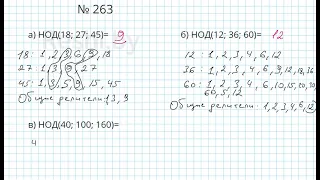 № 263
а) НОД(18; 27; 45)= 9
18: 1, 2, 3, 6, 9, 18
27: 1, 3, 9, 27
45: 1, 3, 5, 9, 15, 45
Общие делители: 1, 3, 9
б) НОД(12; 36; 60)= 12
12: 1, 2, 3, 4, 6, 12
36: 1, 2, 3, 4, 6, 9, 12, 18, 36
60: 1, 2, 3, 4, 6, 10, 15, 20, 30,
60, 5, 12
Общие делители: 1, 2, 3, 4, 6, 12
в) НОД(40; 100; 160)=
4